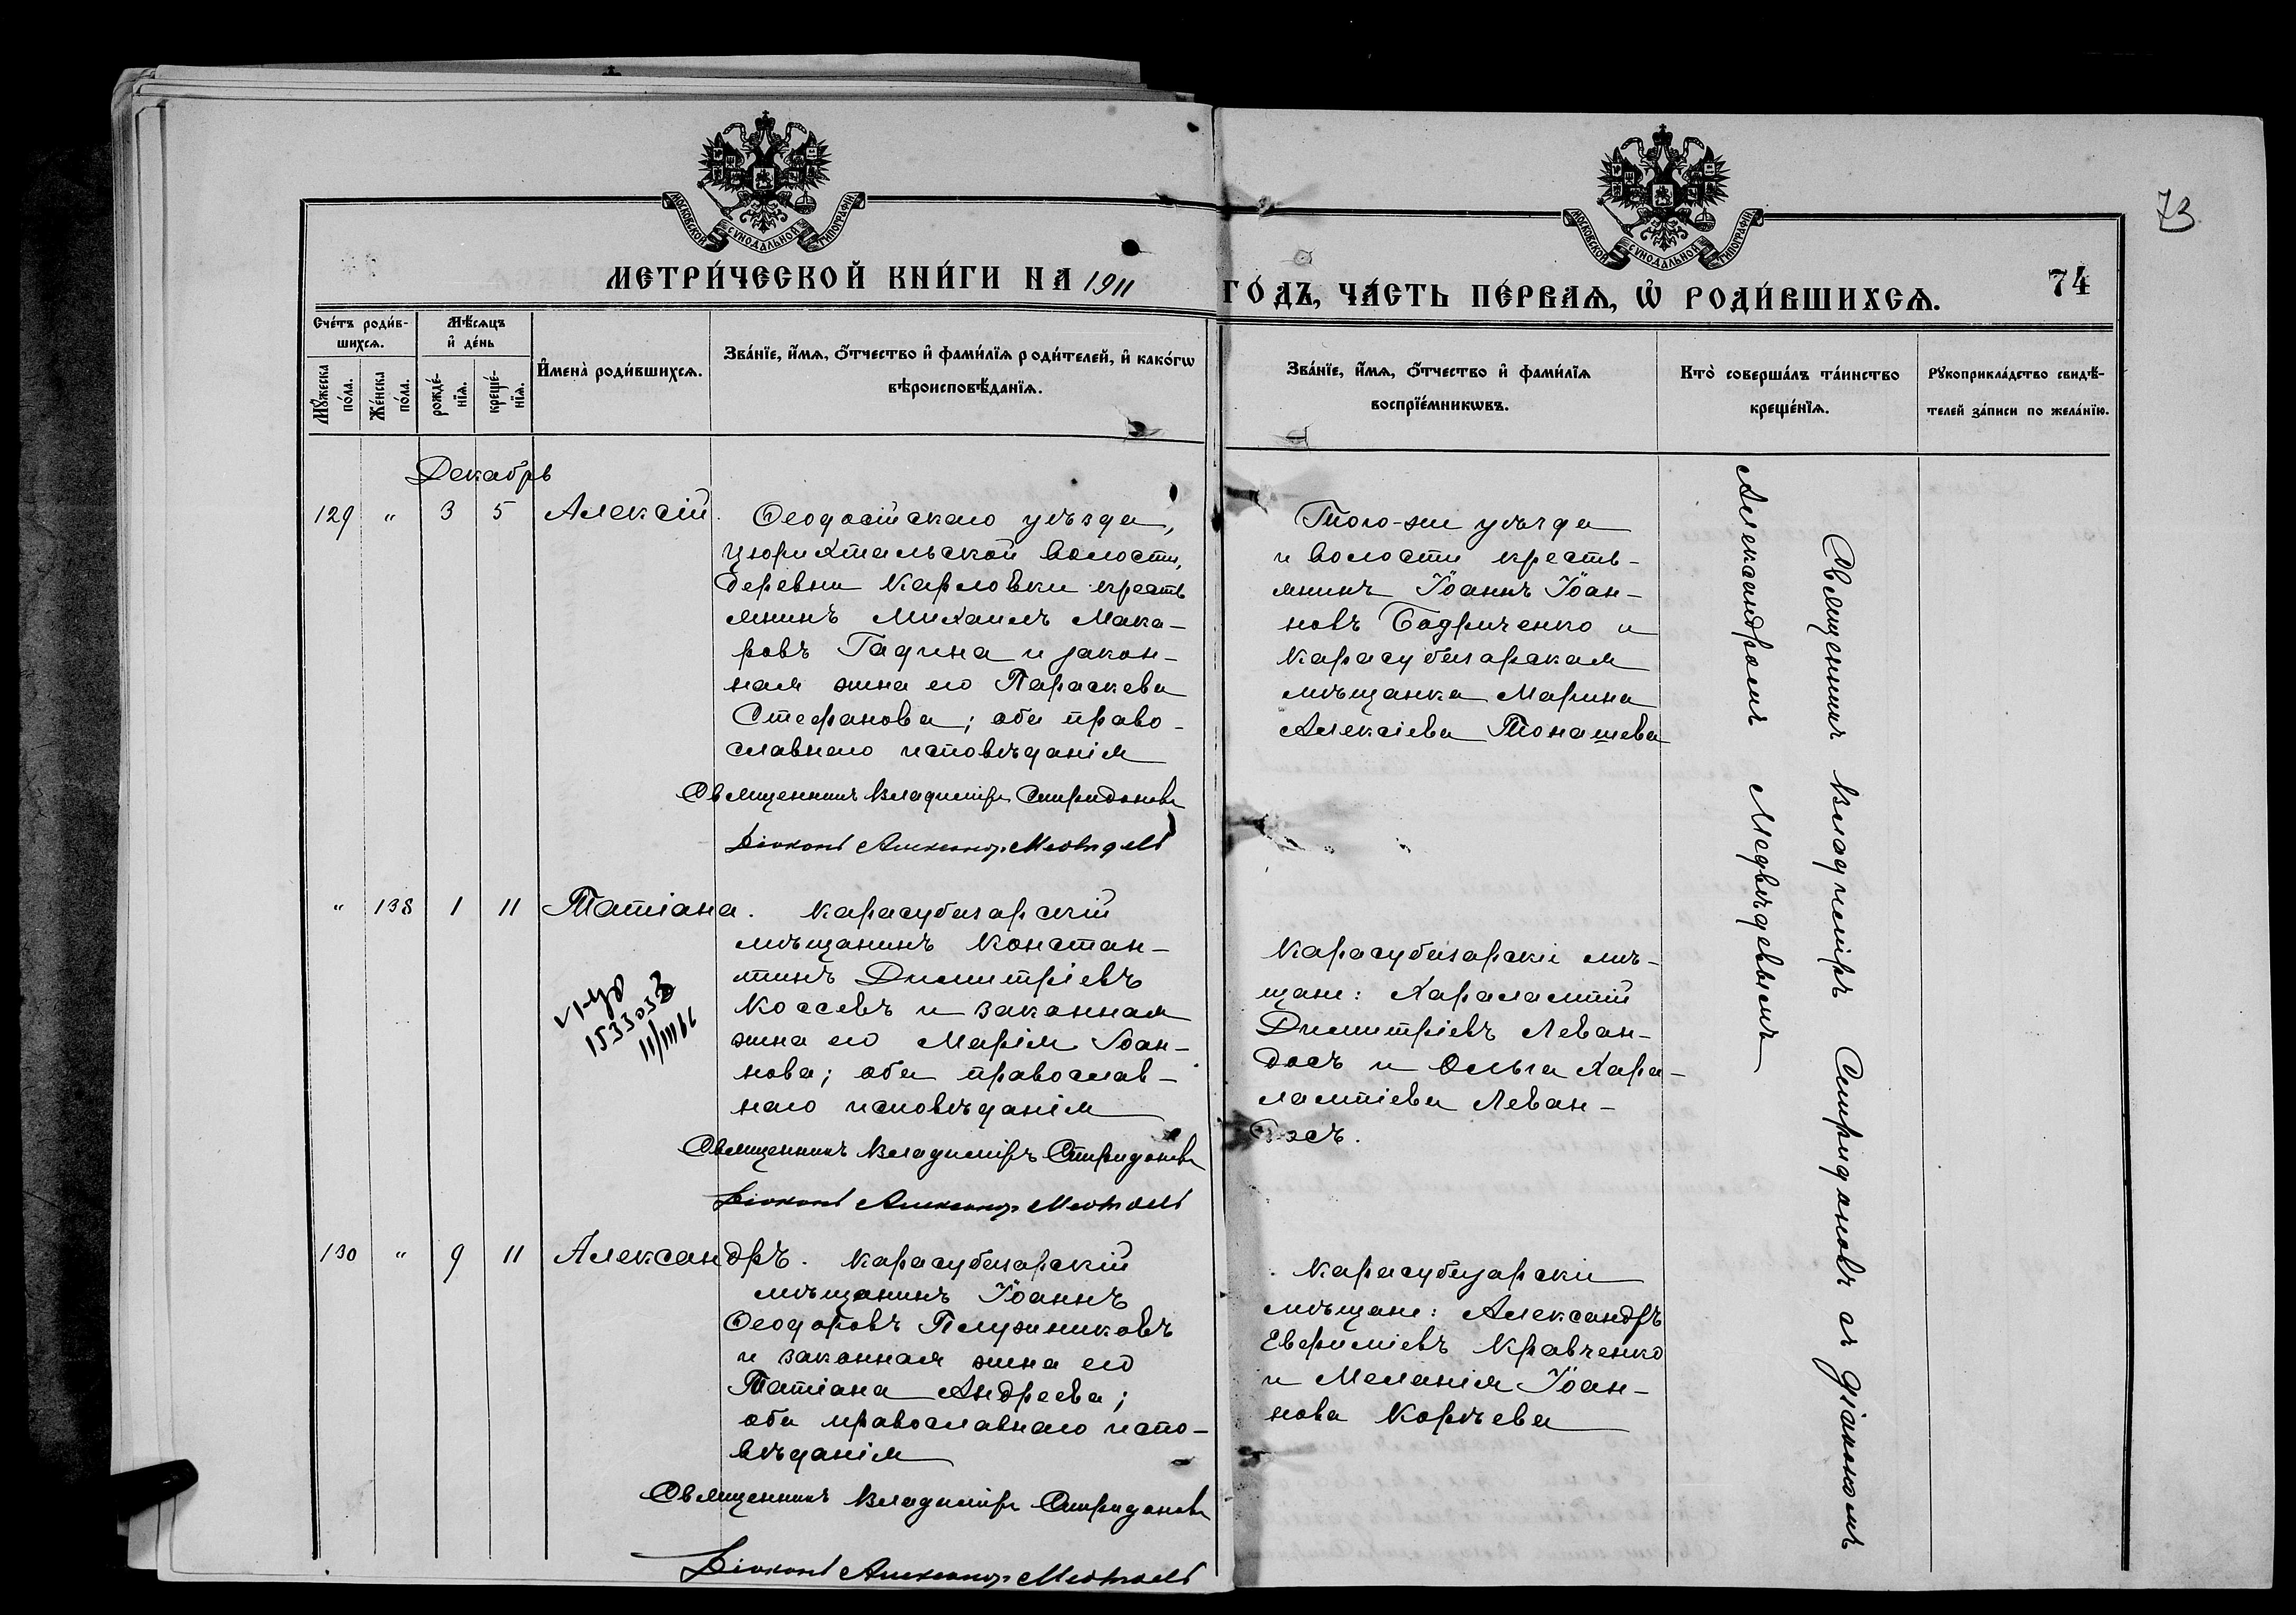 МОСКОВСКОЙ СѴНОДАЛЬНОЙ ТИПОГРАФІИ
МОСКОВСКОЙ СѴНОДАЛЬНОЙ ТИПОГРАФІИ
73
МЕТРИ́ЧЕСКОЙ КНИ́ГИ НА 1911 ГО́ДЪ, ЧА́СТЬ ПЕ́РВАѦ, Ѡ҆ РОДИ́ВШИХСѦ.
74
Сче́тъ роди́в-
шихсѧ.
Мѣ́сѧцъ
и҆ де́нь
Мꙋ́жеска по́ла.
Же́нска по́ла.
рожде́-
нїѧ.
креще́-
нїѧ.
И҆мена̀ роди́вшихсѧ.
Зва́нїе, и҆́мѧ, ѻ҆́тчество и҆ фами́лїѧ роди́телей, и҆ како́гѡ
вѣроисповѣ́данїѧ.
Зва́нїе, и҆́мѧ, ѻ҆́тчество и҆ фами́лїѧ
воспрїе́мникѡвъ.
Кто̀ соверша́лъ та́инство
креще́нїѧ.
Рꙋкоприкла́дство свидѣ́-
телей за́писи по жела́нїю.
Декабрь
129 " 3 5 Алексій.
Ѳеодосійскаго уѣзда,
Цюрихтальской волости,
деревни Карловки кресть
янинъ Михаилъ Мака-
ровъ Гадина и закон-
ная жена его Параскева
Стефанова; оба право-
славнаго исповѣданія
Священникъ Владиміръ Спиридоновъ
Діаконъ Александръ
Того-же уѣзда
и волости кресть-
янинъ Іоаннъ Іоан-
новъ Бодриченко и
Карасубазарская
мѣщанка Марина
Алексіева Тонашева
Священникъ Владиміръ Спиридоновъ съ діакономъ
Александромъ Медвѣдевымъ
" 138 1 11 Татіана.
Карасубазарскій
мѣщанинъ Констан-
тинъ Димитріевъ
Коссевъ и законная
жена его Марія Іоан-
нова; оба православ-
наго исповѣданія
Священникъ Владиміръ Спиридоновъ
Діаконъ Александръ
11/III 66
Карасубазарскіе мѣ-
щане: Харалампій
Димитріевъ Леван-
досъ и Ольга Хара-
лампіева Леван-
досъ.
130 " 9 11 Александръ.
Карасубазарскій
мѣщанинъ Іоаннъ
Ѳеодоровъ Плужниковъ
и законная жена его
Татіана Андреева;
оба православнаго испо-
вѣданія
Священникъ Владиміръ Спиридоновъ
Діаконъ Александръ
Карасубазарскіе
мѣщане: Александръ
Евфиміевъ Кравченко
и Меланія Іоан-
нова Корѣева